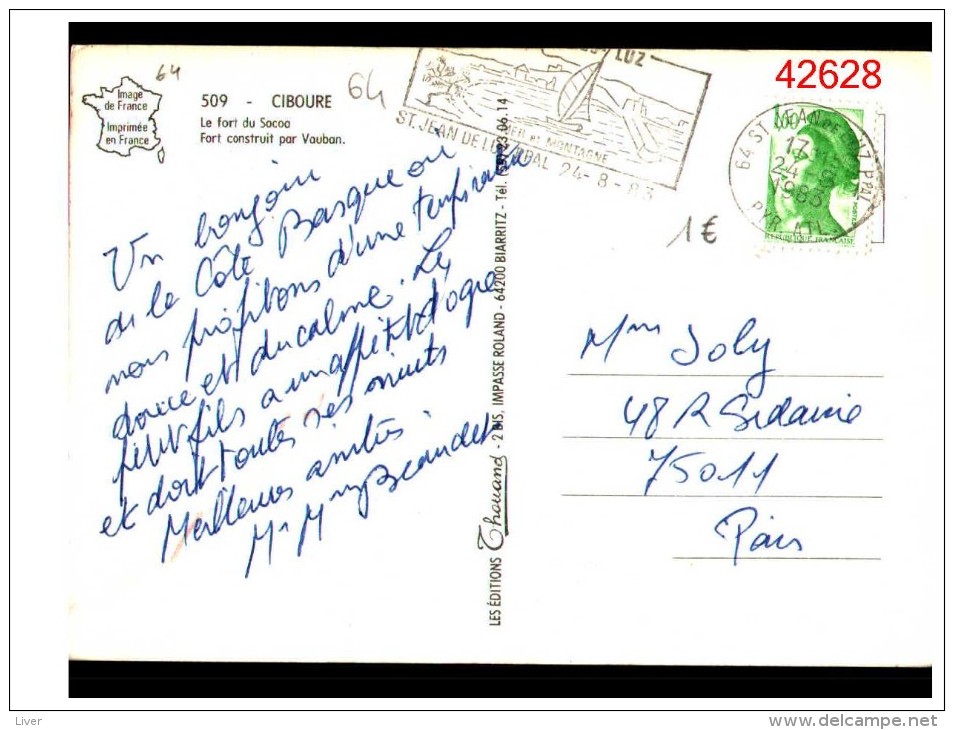 42628
64
Image
de France
Imprimée
en France
509 - CIBOURE
Le fort du Socoa
Fort construit par Vauban.
64
LUZ
MER ET MONTAGNE
ST. JEAN DE LUZ PPAL 24-8-83
64 ST JEAN DE LUZ PPAL
17
24 - 8
1983
PYR ATL
1,00
REPUBLIQUE FRANÇAISE
1€
Un bonjour
de la Côte Basque où
nous profitons d'une température
douce et du calme. Le
petit fils a un appétit d'ogre
et dort toutes ses nuits
Meilleures amitiés.
Mr Mme Beaudet
LES ÉDITIONS Thouand - 2 BIS, IMPASSE ROLAND - 64200 BIARRITZ - Tél. (59) 23.06.14
Mme Joly
48 R Sedaine
75011
Paris
Liver
www.delcampe.net